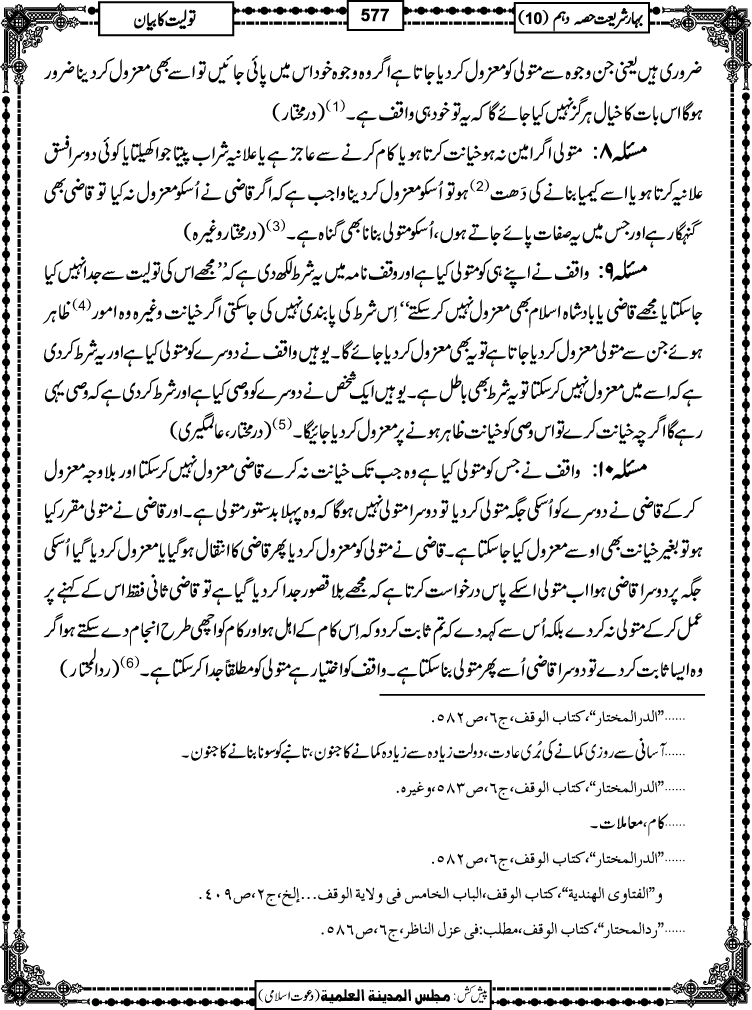 بہارِ شریعت حصہ دہم (10)
577
تولیت کا بیان
ضروری ہیں یعنی جن وجوہ سے متولی کو معزول کردیا جاتا ہے اگر وہ وجوہ خود اس میں پائی جائیں تو اسے بھی معزول کردینا ضرور
ہوگا اس بات کا خیال ہرگز نہیں کیا جائے گا کہ یہ تو خود ہی واقف ہے۔(1) (درمختار)
مسئلہ ۸: متولی اگر امین نہ ہو خیانت کرتا ہو یا کام کرنے سے عاجز ہے یا علانیہ شراب پیتا جوا کھیلتا یا کوئی دوسرا فسق
علانیہ کرتا ہو یا اسے کیمیا بنانے کی دَھت(2) ہو تو اُسکو معزول کردینا واجب ہے کہ اگر قاضی نے اُسکو معزول نہ کیا تو قاضی بھی
گنہگار ہے اور جس میں یہ صفات پائے جاتے ہوں، اُسکو متولی بنانا بھی گناہ ہے۔(3) (درمختار وغیرہ)
مسئلہ ۹: واقف نے اپنے ہی کو متولی کیا ہے اور وقف نامہ میں یہ شرط لکھ دی ہے کہ ’’مجھے اس کی تولیت سے جدا نہیں کیا
جاسکتا یا مجھے قاضی یا بادشاہ اسلام بھی معزول نہیں کرسکتے‘‘ اِس شرط کی پابندی نہیں کی جاسکتی اگر خیانت وغیرہ وہ امور(4) ظاہر
ہوئے جن سے متولی معزول کردیا جاتا ہے تو یہ بھی معزول کردیا جائے گا۔ یوہیں واقف نے دوسرے کو متولی کیا ہے اور یہ شرط کردی
ہے کہ اسے میں معزول نہیں کرسکتا تو یہ شرط بھی باطل ہے۔ یوہیں ایک شخص نے دوسرے کو وصی کیا ہے اور شرط کردی ہے کہ وصی یہی
رہے گا اگرچہ خیانت کرے تو اس وصی کو خیانت ظاہر ہونے پر معزول کردیا جائیگا۔(5) (درمختار، عالمگیری)
مسئلہ ۱۰: واقف نے جس کو متولی کیا ہے وہ جب تک خیانت نہ کرے قاضی معزول نہیں کرسکتا اور بلا وجہ معزول
کرکے قاضی نے دوسرے کو اُسکی جگہ متولی کردیا تو دوسرا متولی نہیں ہوگا کہ وہ پہلا بدستور متولی ہے۔ اور قاضی نے متولی مقرر کیا
ہو تو بغیر خیانت بھی اوسے معزول کیا جاسکتا ہے۔ قاضی نے متولی کو معزول کردیا پھر قاضی کا انتقال ہوگیا یا معزول کردیا گیا اُسکی
جگہ پر دوسرا قاضی ہوا اب متولی اسکے پاس درخواست کرتا ہے کہ مجھے بلا قصور جدا کردیا گیا ہے تو قاضی ثانی فقط اس کے کہنے پر
عمل کرکے متولی نہ کردے بلکہ اُس سے کہہ دے کہ تم ثابت کردو کہ اِس کام کے اہل ہو اور کام کو اچھی طرح انجام دے سکتے ہو اگر
وہ ایسا ثابت کردے تو دوسرا قاضی اُسے پھر متولی بنا سکتا ہے۔ واقف کو اختیار ہے متولی کو مطلقاً جدا کرسکتا ہے۔(6) (ردالمحتار)
......’’الدرالمختار‘‘، کتاب الوقف، ج٦، ص٥٨٢.
......آسانی سے روزی کمانے کی بُری عادت، دولت زیادہ سے زیادہ کمانے کا جنون، تانبے کو سونا بنانے کا جنون۔
......’’الدرالمختار‘‘، کتاب الوقف، ج٦، ص٥٨٣، وغیرہ.
......کام، معاملات۔
......’’الدرالمختار‘‘، کتاب الوقف، ج٦، ص٥٨٢.
و’’الفتاوی الھندیۃ‘‘، کتاب الوقف، الباب الخامس فی ولایۃ الوقف...إلخ، ج٢، ص٤٠٩.
......’’ردالمحتار‘‘، کتاب الوقف، مطلب: فی عزل الناظر، ج٦، ص٥٨٦.
پیش کش: مجلس المدینۃ العلمیۃ (دعوت اسلامی)